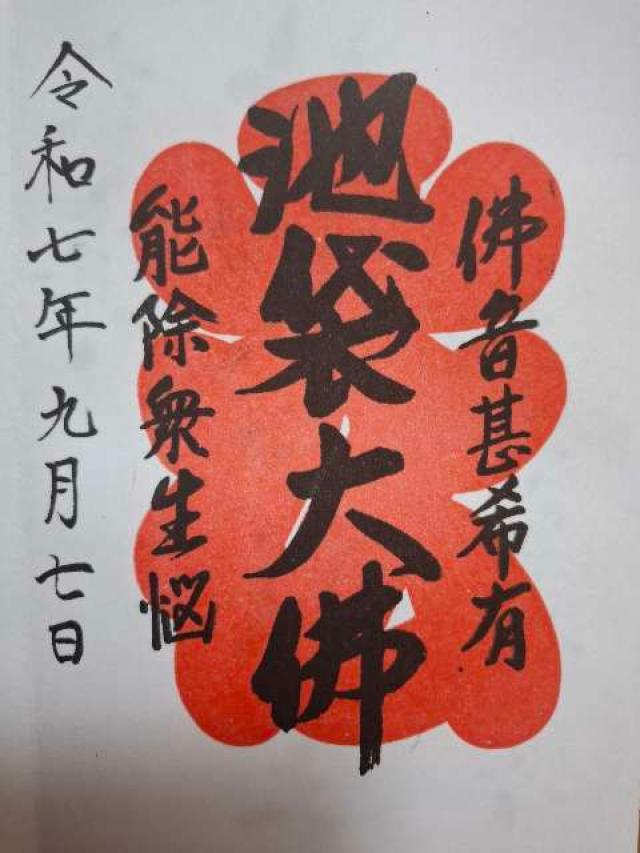 佛音甚希有
池袋大佛
能除衆生悩
令和七年九月七日